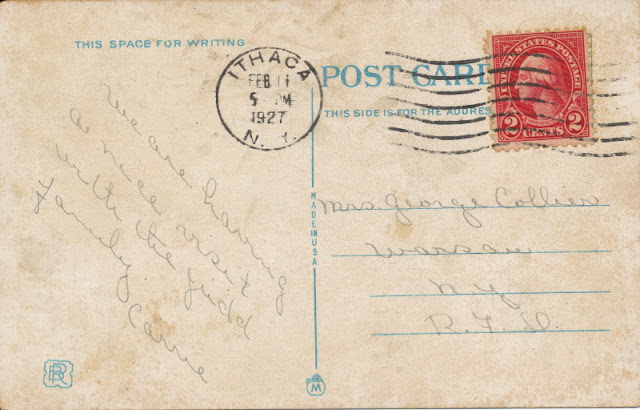 THIS SPACE FOR WRITING
ITHACA
FEB 11
5 PM
1927
N. Y.
POST CARD
THIS SIDE IS FOR THE ADDRESS
UNITED STATES POSTAGE
2 CENTS 2
We are having
a nice visit
with the Judd
family
Carrie
MADE IN USA
Mrs. George Collier
Warsaw
N.Y.
R.F.D.
M